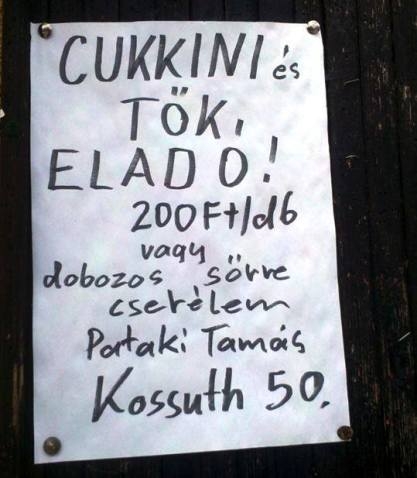 CUKKINI és
TÖK,
ELADO!
200Ft/db
vagy
dobozos sörre
cserélem
Pataki Tamás
Kossuth 50.